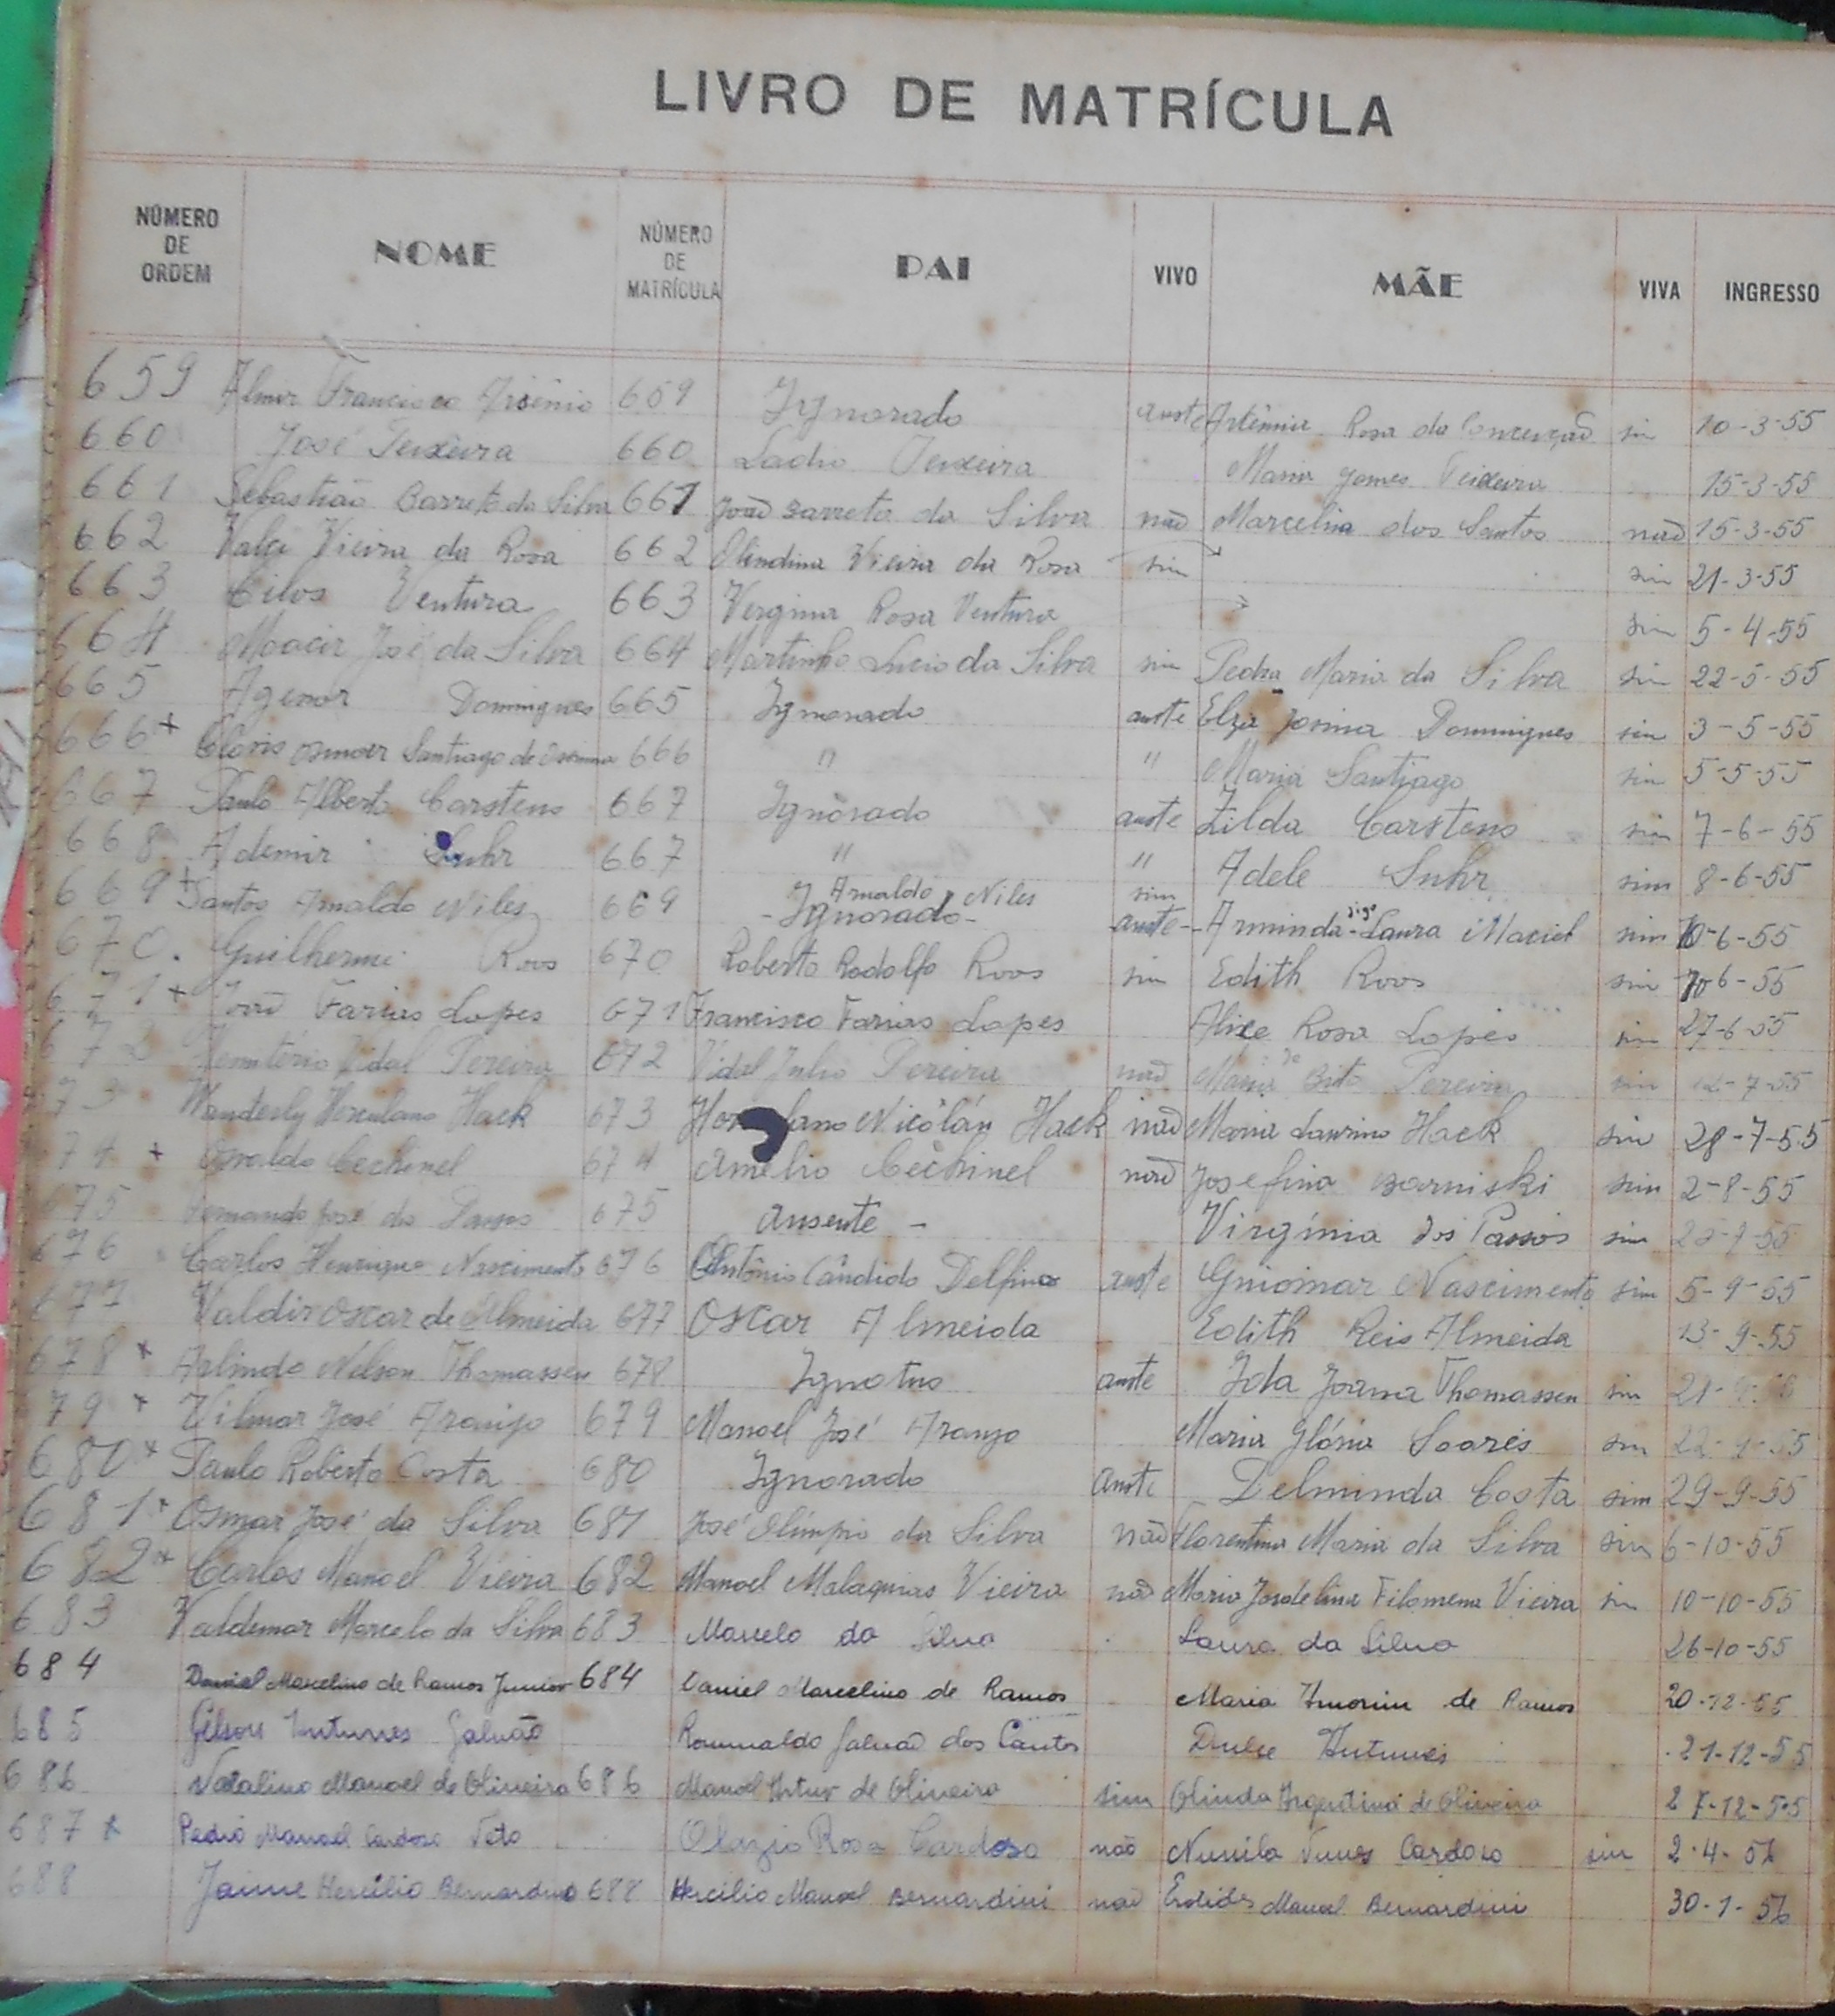 LIVRO DE MATRÍCULA
NÚMERO DE ORDEM NOME NÚMERO DE MATRÍCULA PAI VIVO MÃE VIVA INGRESSO
659 Almir Francisco Arsênio 659 Ignorado auste Artêmia Rosa da Conceição sim 10-3-55
660 José Teixeira 660 Ladio Teixeira Maria Gomes Teixeira 15-3-55
661 Sebastião Barreto da Silva 661 João Barreto da Silva não Marcelina dos Santos não 15-3-55
662 Valci Vieira da Rosa 662 Olindina Vieira da Rosa sim sim 21-3-55
663 Ventura 663 Vergina Rosa Ventura sim 5-4-55
664 Moacir José da Silva 664 Martinho Lucio da Silva sim Pedra Maria da Silva sim 22-5-55
665 Agenor Domingues 665 Ignorado auste Elza Josina Domingues sim 3-5-55
666+ Santiago de 666 " " Maria Santiago sim 5-5-55
667 Paulo Alberto Carstens 667 Ignorado auste Zilda Carstens sim 7-6-55
668 Ademir Suhr 667 " " Adele Suhr sim 8-6-55
669+ Santos Arnaldo Niles 669 Arnaldo Niles sim
-Ignorado- auste - Arminda - digo Laura Maciel sim 10-6-55
670. Guilherme Roos 670 Roberto Rodolfo Roos sim Edith Roos sim 10-6-55
671+ João Farias Lopes 671 Francisco Farias Lopes Alice Rosa Lopes sim 27-6-55
672 Vidal Pereira 672 Vidal Julio Pereira não Maria Brito Pereira sim 12-7-55
73 Wanderly Herculano Hack 673 Nicolán Hack não Maria Laurino Hack sim 28-7-55
74 + Osvaldo Cechinel 674 Amélio Cechinel não Josefina Borniski sim 2-8-55
675 Fernando José dos Passos 675 Ausente - Virgínia dos Passos sim
676 Carlos Henrique Nascimento 676 Antônio Cândido Delfino auste Guiomar Nascimento sim 5-9-55
677 Valdir Oscar de Almeida 677 Oscar Almeida Edith Reis Almeida 13-9-55
678+ Arlindo Nélson Thomassen 678 Ignotus auste Ida Joana Thomassen sim
79+ Vilmar José Araujo 679 Manoel José Araujo Maria Glória Soares sim 22-9-55
680+ Paulo Roberto Costa 680 Ignorado Auste Delminda Costa sim 29-9-55
681+ Osmar José da Silva 681 José Olímpio da Silva não Florentina Maria da Silva sim 6-10-55
682+ Carlos Manoel Vieira 682 Manoel Malaquias Vieira não Maria Josdelina Filomena Vieira sim 10-10-55
683 Valdemar Marcelo da Silva 683 Marcelo da Silva Laura da Silva 26-10-55
684 Daniel Marcelino de Ramos Junior 684 Daniel Marcelino de Ramos Maria Amorim de Ramos 20-12-55
685 Gilson Antunes Galvão Romualdo Galvão dos Santos Dulce Antunes 21-12-55
686 Natalino Manoel de Oliveira 686 Manoel Artur de Oliveira sim Olinda Argentina de Oliveira 27-12-55
687+ Pedro Manoel Cardoso Neto Olazio Rosa Cardoso não Nunes Cardoso sim 2-4-56
688 Jaime Hercilio Bernardino 688 Hercilio Manoel Bernardini não Manoel Bernardini 30-1-56